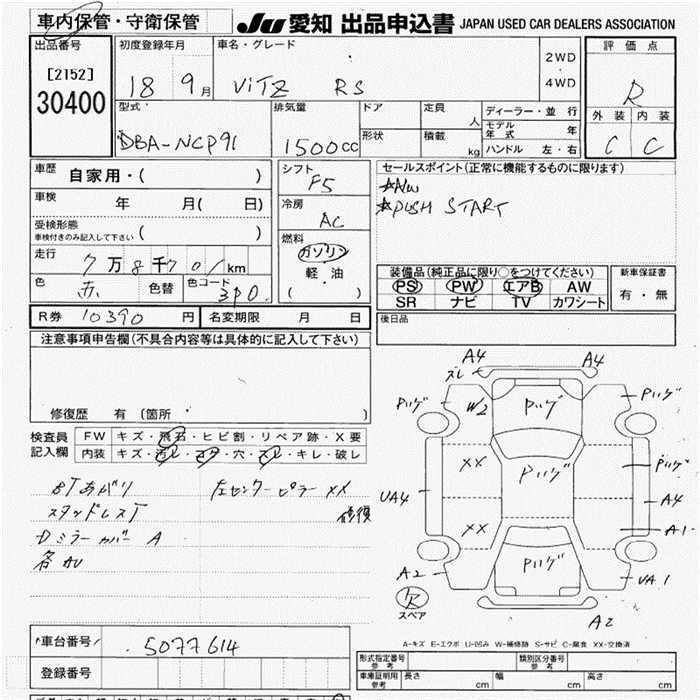 車内保管・守衛保管
JU 愛知 出品申込書 JAPAN USED CAR DEALERS ASSOCIATION
出品番号
[2152]
30400
初度登録年月
18 9月
車名・グレード
ViTZ RS
2WD
・
4WD
評価点
R
外装 内装
C C
型式
DBA-NCP91
排気量
1500cc
ドア
形状
定員 人
積載 kg
ディーラー・並行
モデル年式 年
ハンドル 左・右
車歴 自家用・( )
車検 年 月( 日)
受検形態
車検付きのみ記入して下さい ( )
走行 7万8千701km
色 赤 色替 色コード 3P0
シフト
F5
冷房
AC
燃料
ガソリン
軽・油
( )
セールスポイント(正常に機能するものに限ります)
☆AW
☆PUSH START
装備品(純正品に限り○をつけてください)
PS PW エアB AW
SR ナビ TV カワシート
新車保証書
有・無
R券 10390 円 名変期限 月 日
後日品
注意事項申告欄(不具合内容等は具体的に記入して下さい)
修復歴 有(箇所 )
検査員
記入欄
FW キズ・飛石・ヒビ割・リペア跡・X要
内装 キズ・汚レ・コゲ・穴・スレ・キレ・破レ
8Tあがり 左センターピラー XX
スタッドレスT 修復
Dミラーカバー A
各AU
A4 A4
ズレ
Pいゲ W2 Pいゲ Pいゲ
XX Pいゲ Pいゲ
UA4 A4
XX A1
A2 Pいゲ UA1
欠
スペア
A2
A-キズ E-エクボ U-凹み W-補修跡 S-サビ C-腐食 XX-交換済
車台番号 5077614
登録番号
形式指定番号
参考
類別区分番号
参考
車庫証明用
参考
長さ cm 幅 cm 高さ cm